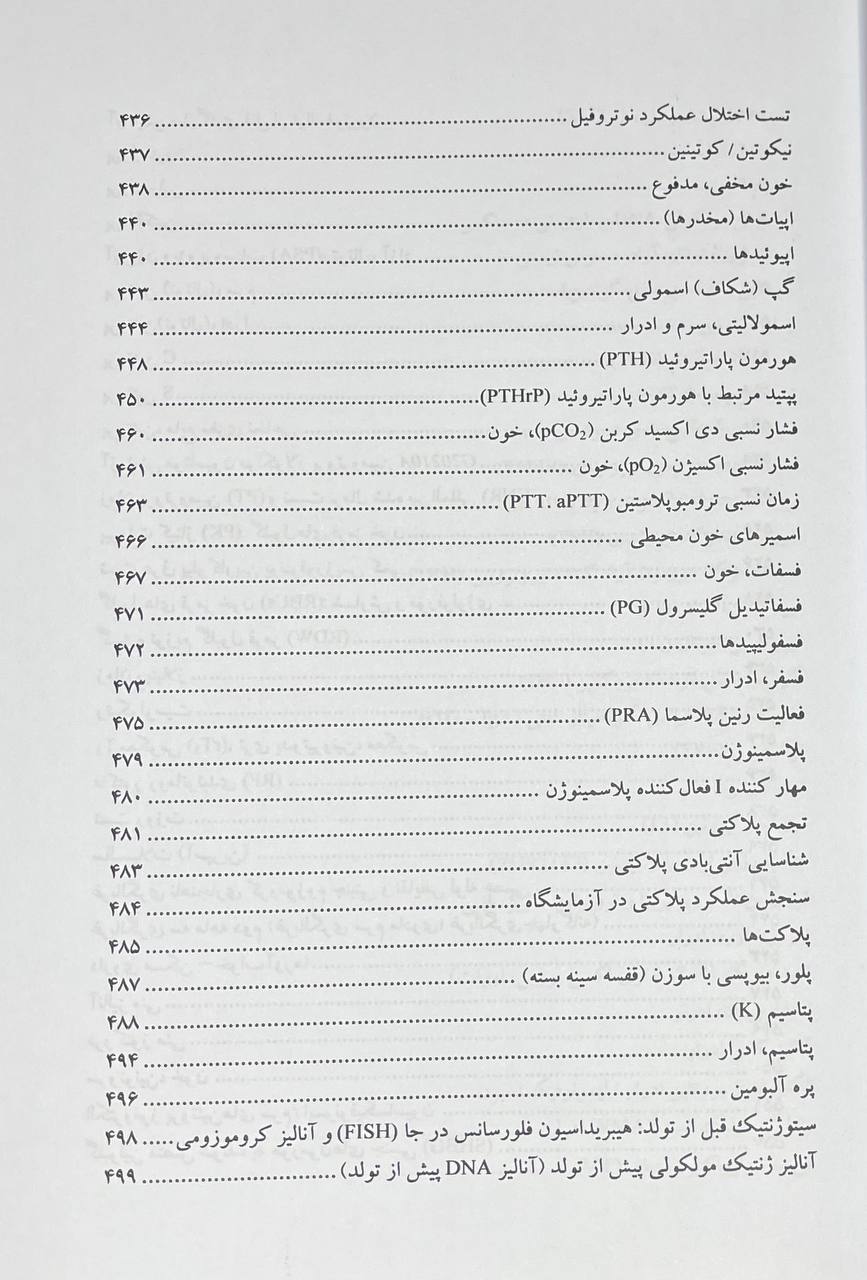 تست اختلال عملکرد نوتروفیل ........ ۴۳۶
نیکوتین/ کوتینین ........ ۴۳۷
خون مخفی، مدفوع ........ ۴۳۸
اپیات‌ها (مخدرها) ........ ۴۴۰
اپیوئیدها ........ ۴۴۰
گپ (شکاف) اسمولی ........ ۴۴۳
اسمولالیتی، سرم و ادرار ........ ۴۴۴
هورمون پاراتیروئید (PTH) ........ ۴۴۸
پپتید مرتبط با هورمون پاراتیروئید (PTHrP) ........ ۴۵۰
فشار نسبی دی اکسید کربن (pCO₂)، خون ........ ۴۶۰
فشار نسبی اکسیژن (pO₂)، خون ........ ۴۶۱
زمان نسبی ترومبوپلاستین (PTT. aPTT) ........ ۴۶۳
اسمیرهای خون محیطی ........ ۴۶۶
فسفات، خون ........ ۴۶۷
فسفاتیدیل گلیسرول (PG) ........ ۴۷۱
فسفولیپیدها ........ ۴۷۲
فسفر، ادرار ........ ۴۷۳
فعالیت رنین پلاسما (PRA) ........ ۴۷۵
پلاسمینوژن ........ ۴۷۹
مهار کننده I فعال‌کننده پلاسمینوژن ........ ۴۸۰
تجمع پلاکتی ........ ۴۸۱
شناسایی آنتی‌بادی پلاکتی ........ ۴۸۳
سنجش عملکرد پلاکتی در آزمایشگاه ........ ۴۸۴
پلاکت‌ها ........ ۴۸۵
پلور، بیوپسی با سوزن (قفسه سینه بسته) ........ ۴۸۷
پتاسیم (K) ........ ۴۸۸
پتاسیم، ادرار ........ ۴۹۴
پره آلبومین ........ ۴۹۶
سیتوژنتیک قبل از تولد: هیبریداسیون فلورسانس در جا (FISH) و آنالیز کروموزومی ..... ۴۹۸
آنالیز ژنتیک مولکولی پیش از تولد (آنالیز DNA پیش از تولد) ........ ۴۹۹